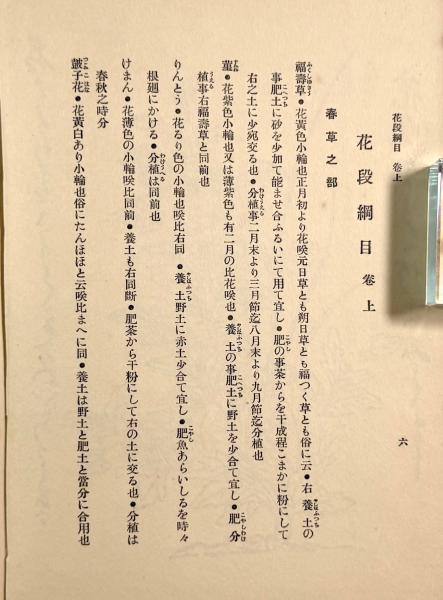 花段綱目 卷上
花段綱目 卷上
春草之部
福壽草・花黃色小輪也正月初より花咲元日草とも朔日草とも福つく草とも俗に云・右養土の
事肥土に砂を少加て能ませ合ふるいにて用て宜し・肥の事茶からを干成程こまかに粉にして
右之土に少宛交る也・分植事二月末より三月節迄八月末より九月節迄分植也
菫・花紫色小輪也又は薄紫色も有二月の比花咲也・養土の事肥土に野土を少合て宜し・肥分
植事右福壽草と同前也
りんとう・花るり色の小輪也咲比右同・養土野土に赤土少合て宜し・肥魚あらいしるを時々
根廻にかける・分植は同前也
けまん・花薄色の小輪咲比同前・養土も右同斷・肥茶から干粉にして右の土に交る也・分植は
春秋之時分
皷子花・花黃白あり小輪也俗にたんほほと云咲比まへに同・養土は野土と肥土と當分に合用也
六